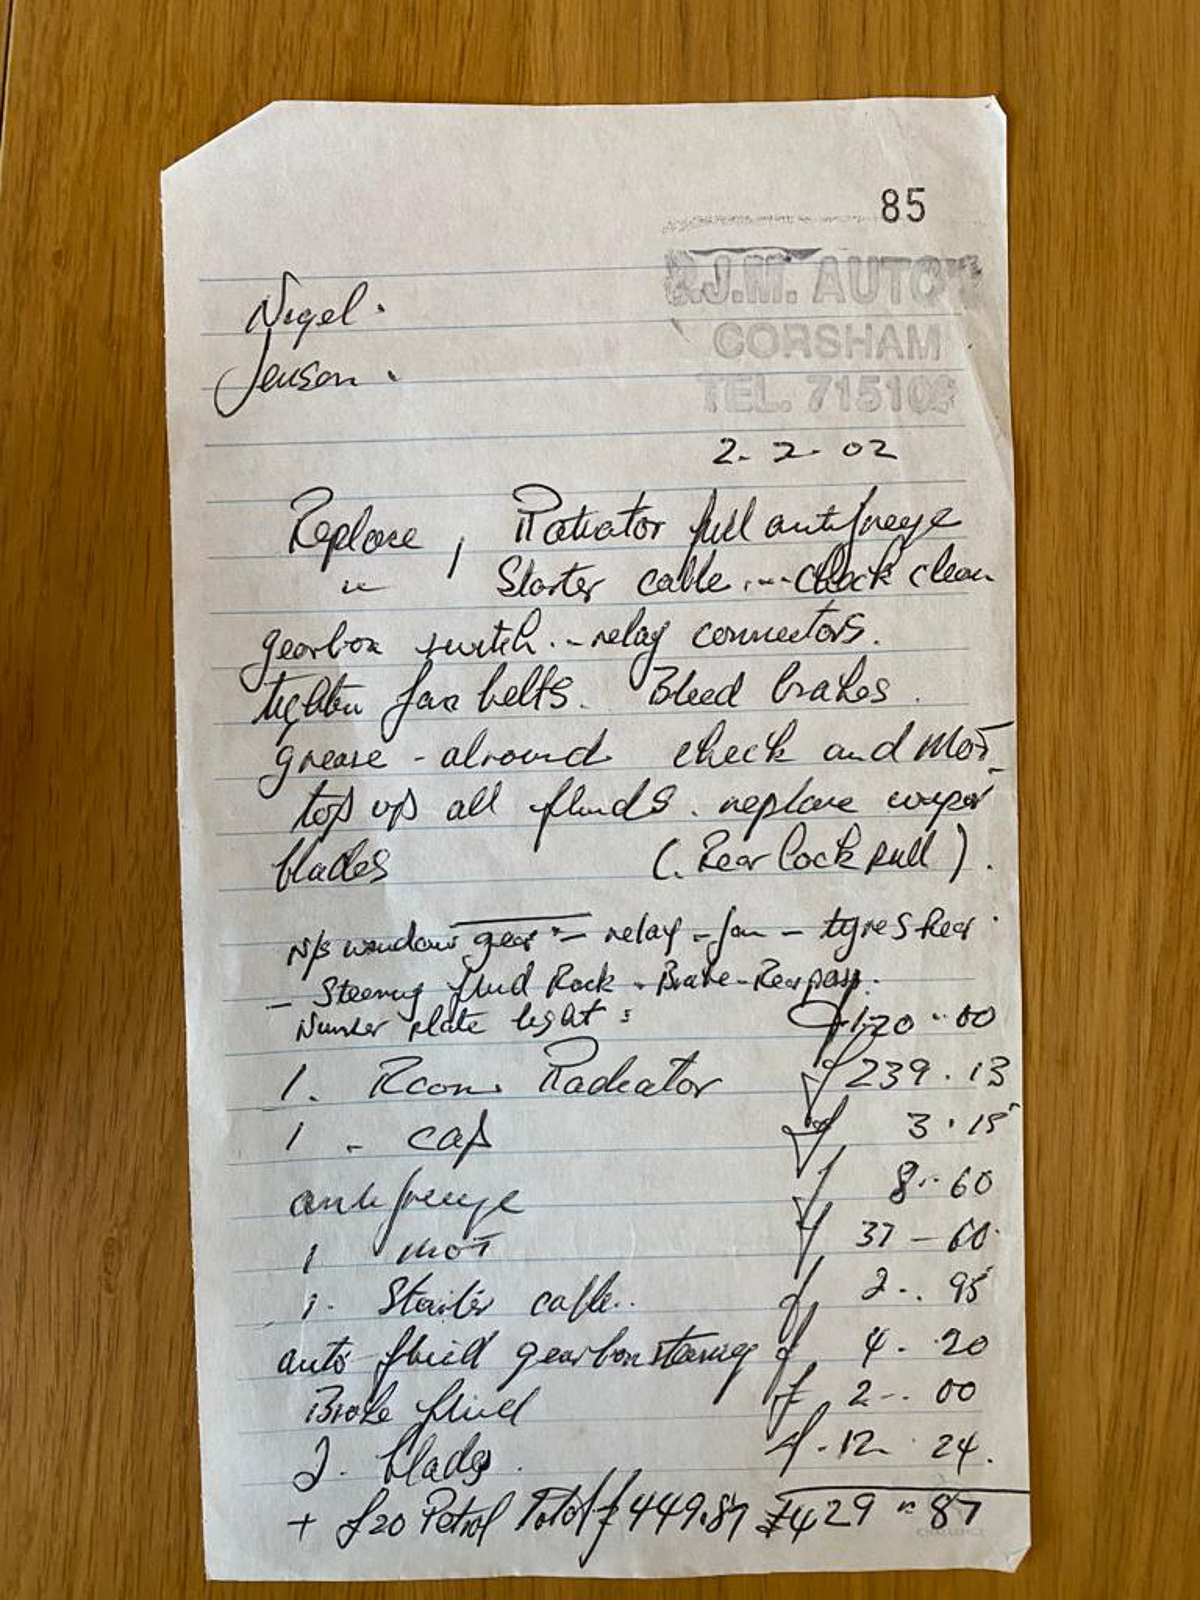 85
J.M. AUTO
CORSHAM
TEL. 71510
Nigel.
Jenson.
2. 2. 02
Replace, Radiator full antifreeze
" Starter cable ... check clean
gearbox switch. - relay connectors.
tighten fan belts. Bleed brakes.
grease - alround check and MOT
top up all fluids. replace wiper
blades (. Rear lock pull ).
N/s window gear - relay - fan - tyres Rear
- Steering fluid Rack - Brake - Rear pass.
Number plate light : £120.00
1. Recon. Radiator £239.13
1 - cap £ 3.15
antifreeze £ 8.60
1 MOT £ 37-60
1. Starter cable.. £ 2.95
auto fluid gearbox steering £ 4.20
Brake fluid £ 2-00
2. blades £.12.24.
+ £20 Petrol Total £449.87 £429.87
CHALLENGE